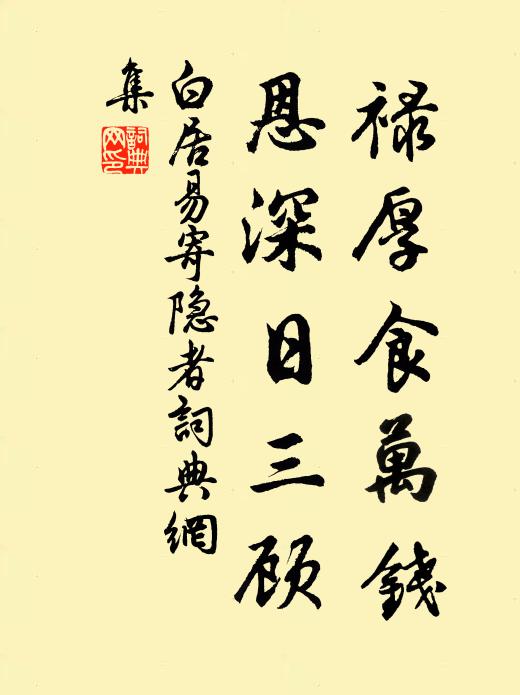 禄厚食萬錢
恩深日三顾
白居易寄隐者詞典網
集
詞典網印